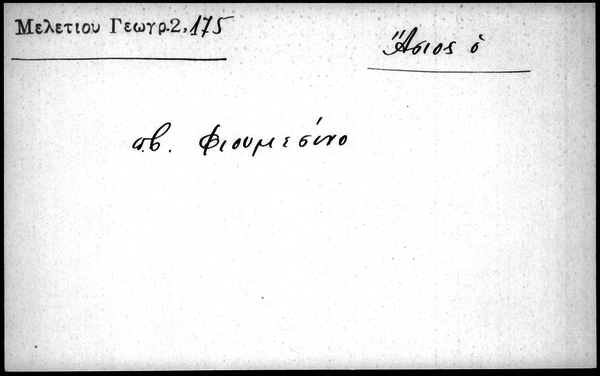 Μελετίου Γεωγρ.2,175
Ἄσιος ὁ
πβ. Φιουμεσίνο